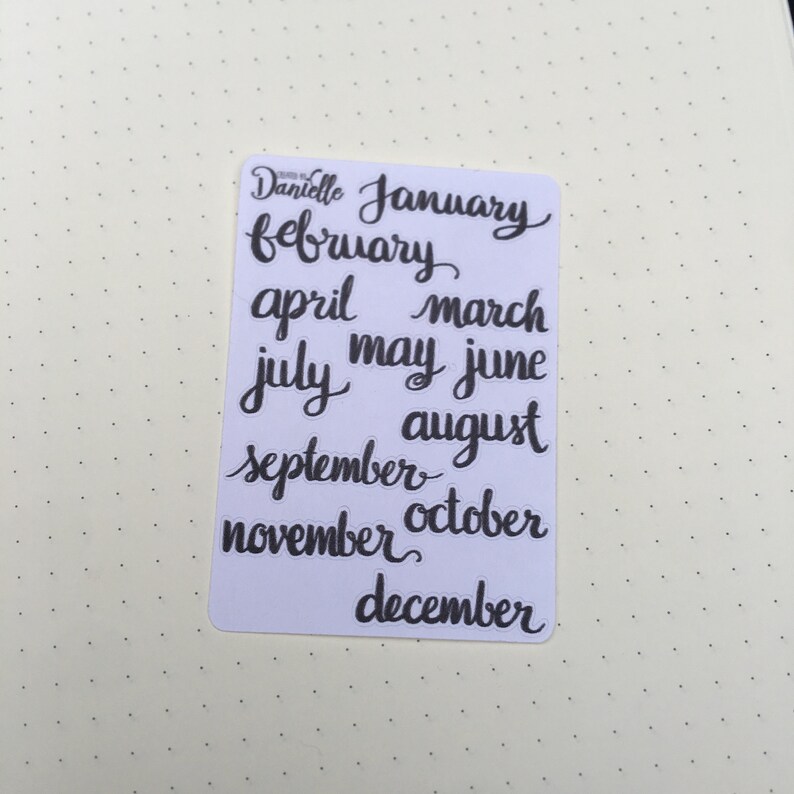 CREATED BY
Danielle january
february
april march
may june
july
august
september
october
november
december